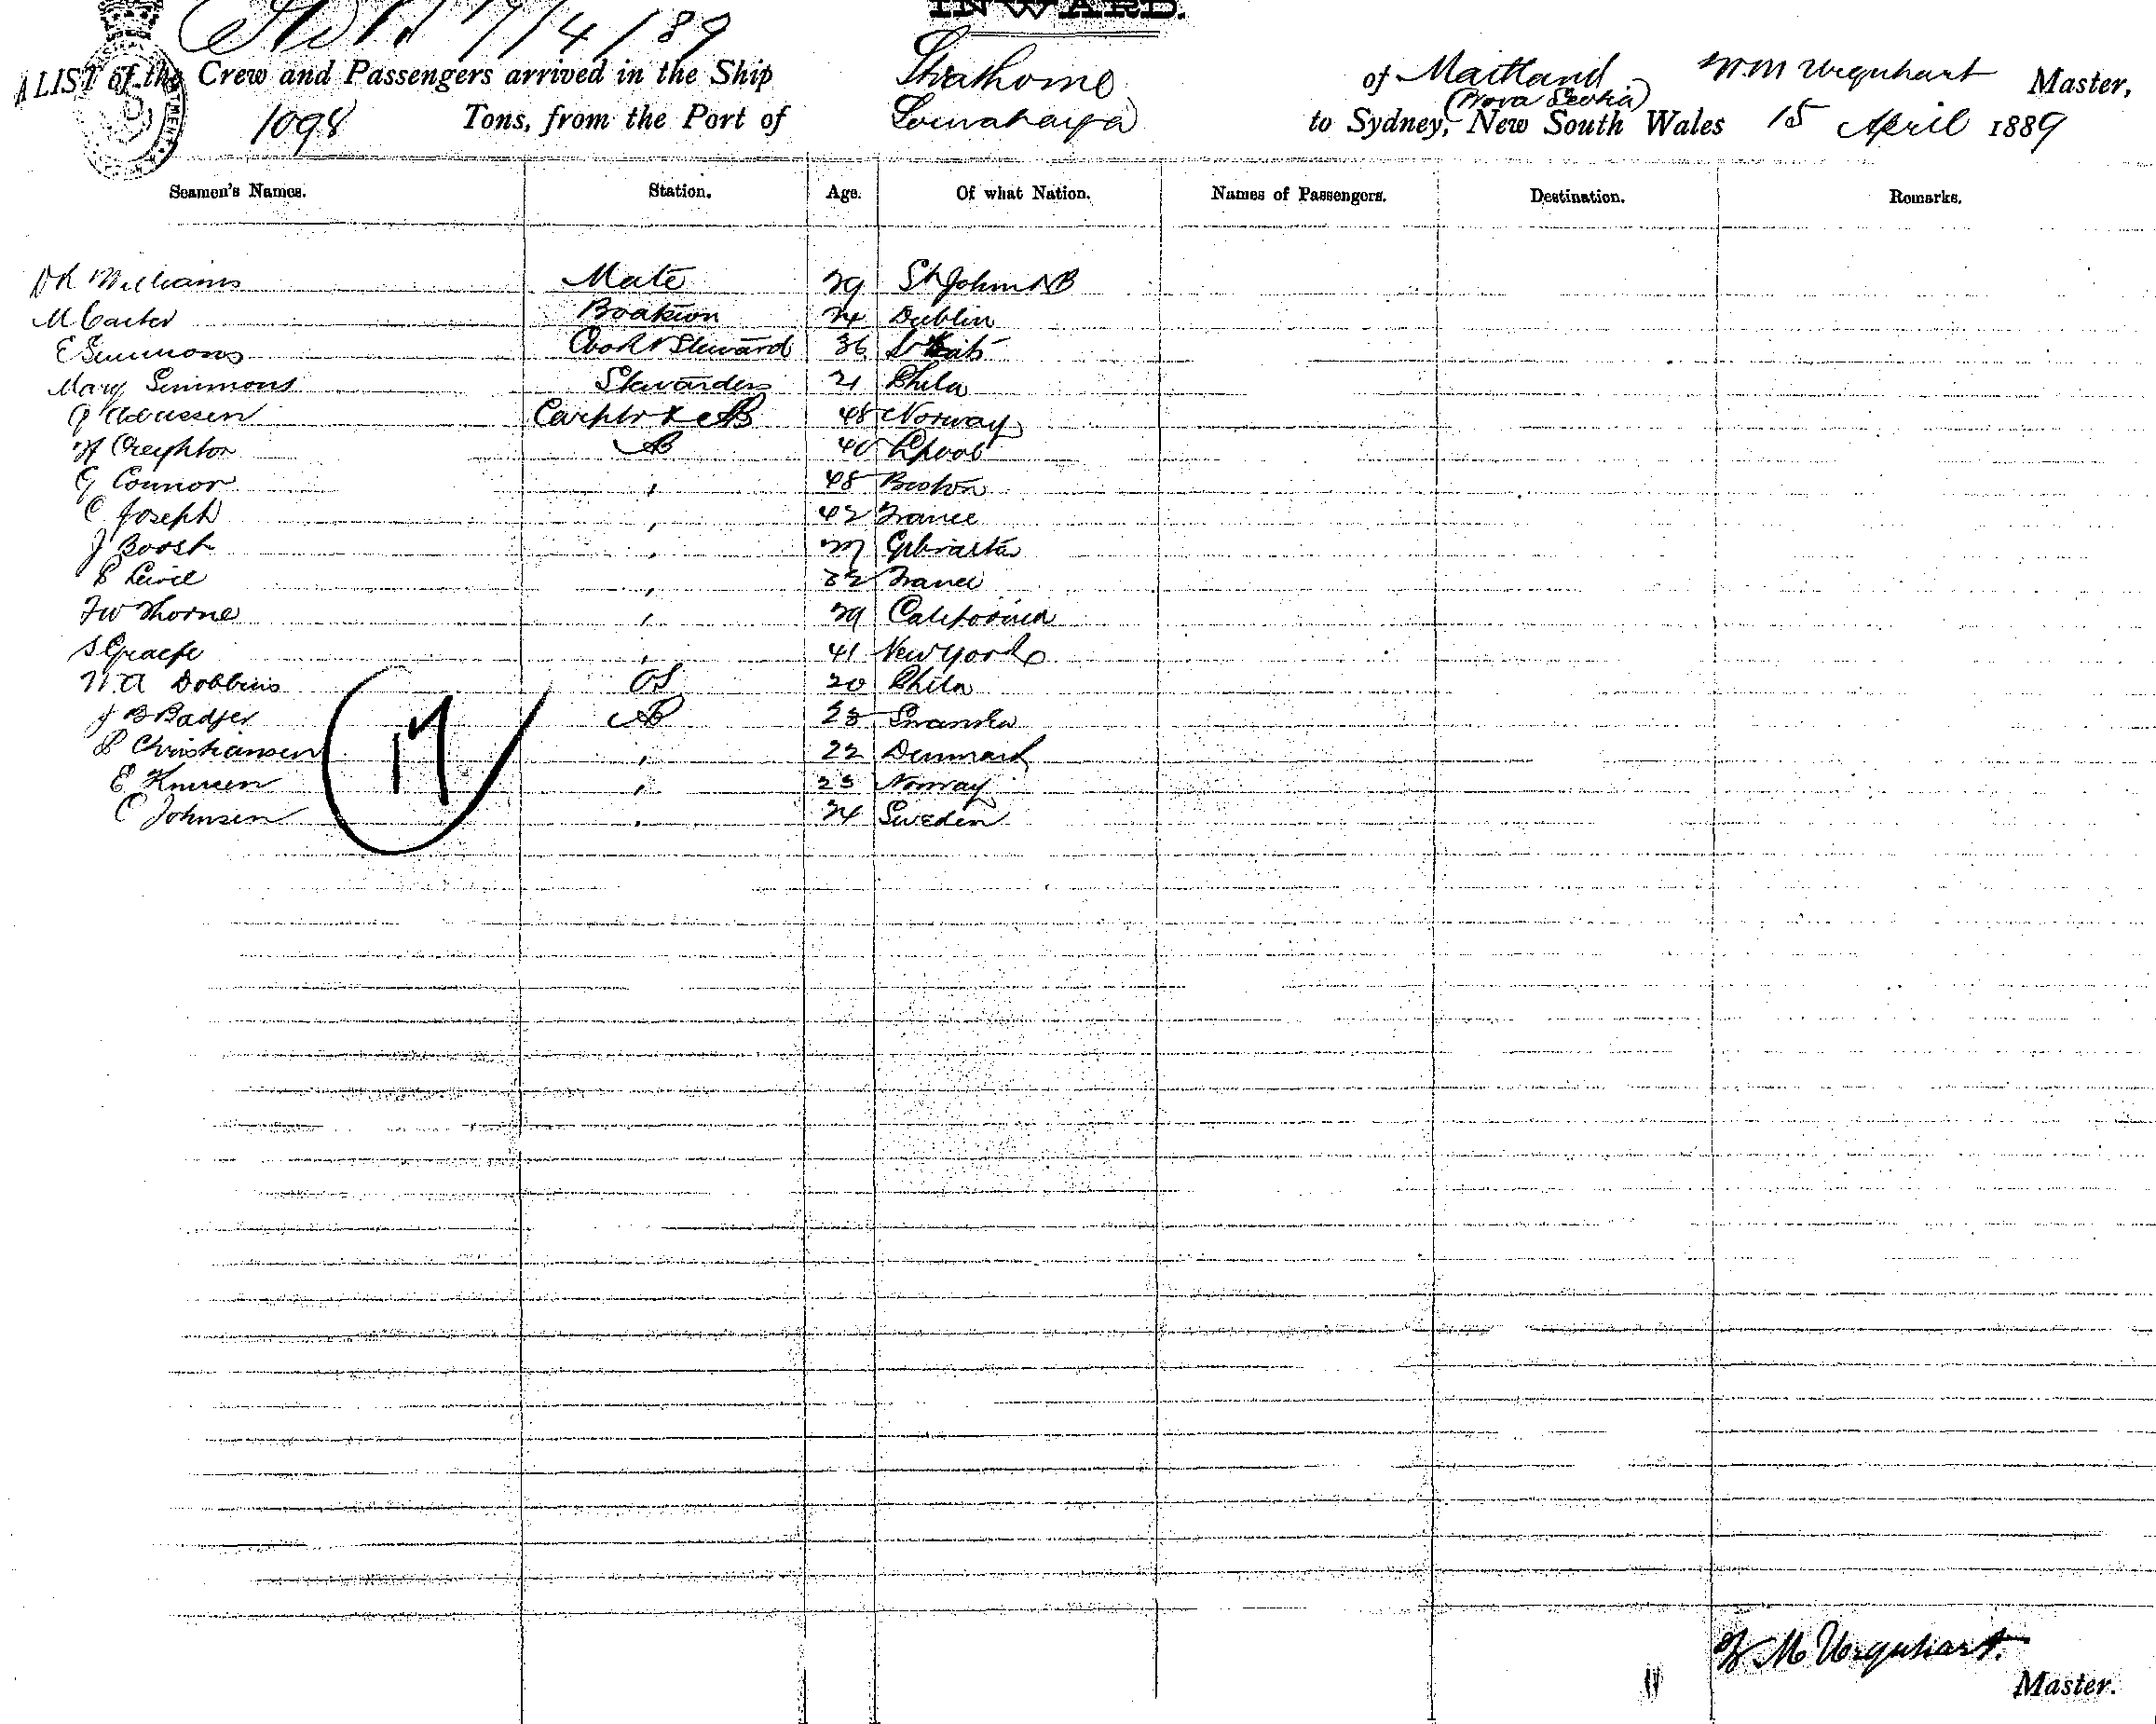 INWARD.
17/4/89
A LIST of the Crew and Passengers arrived in the Ship Strathome of Maitland W.M Urquhart Master,
(Nova Scotia)
1098 Tons, from the Port of Sourabaya to Sydney, New South Wales 15 April 1889
Seamen's Names. Station. Age. Of what Nation. Names of Passengers. Destination. Remarks.
Williams Mate 29 St John NB
M Carter 24 Dublin
E Simmons Cook & Steward 36 St Kits
Mary Simmons Stewardess 21 Phila
Carptr & AB 48 Norway
H Creighton AB 40 Lpool
G Connor , 48 Boston
C Joseph , 42 France
J Boost , 27 Gibraltar
, 32 France
F W Thorne , 29 California
S Graefe , 41 New York
W. A Dobbins OS 20 Phila
J B Badger AB 23
P Christiansen , 22 Denmark
E Knusen , 23 Norway
C Johnsen , 24 Sweden
17
W. M Urquhart.
Master.